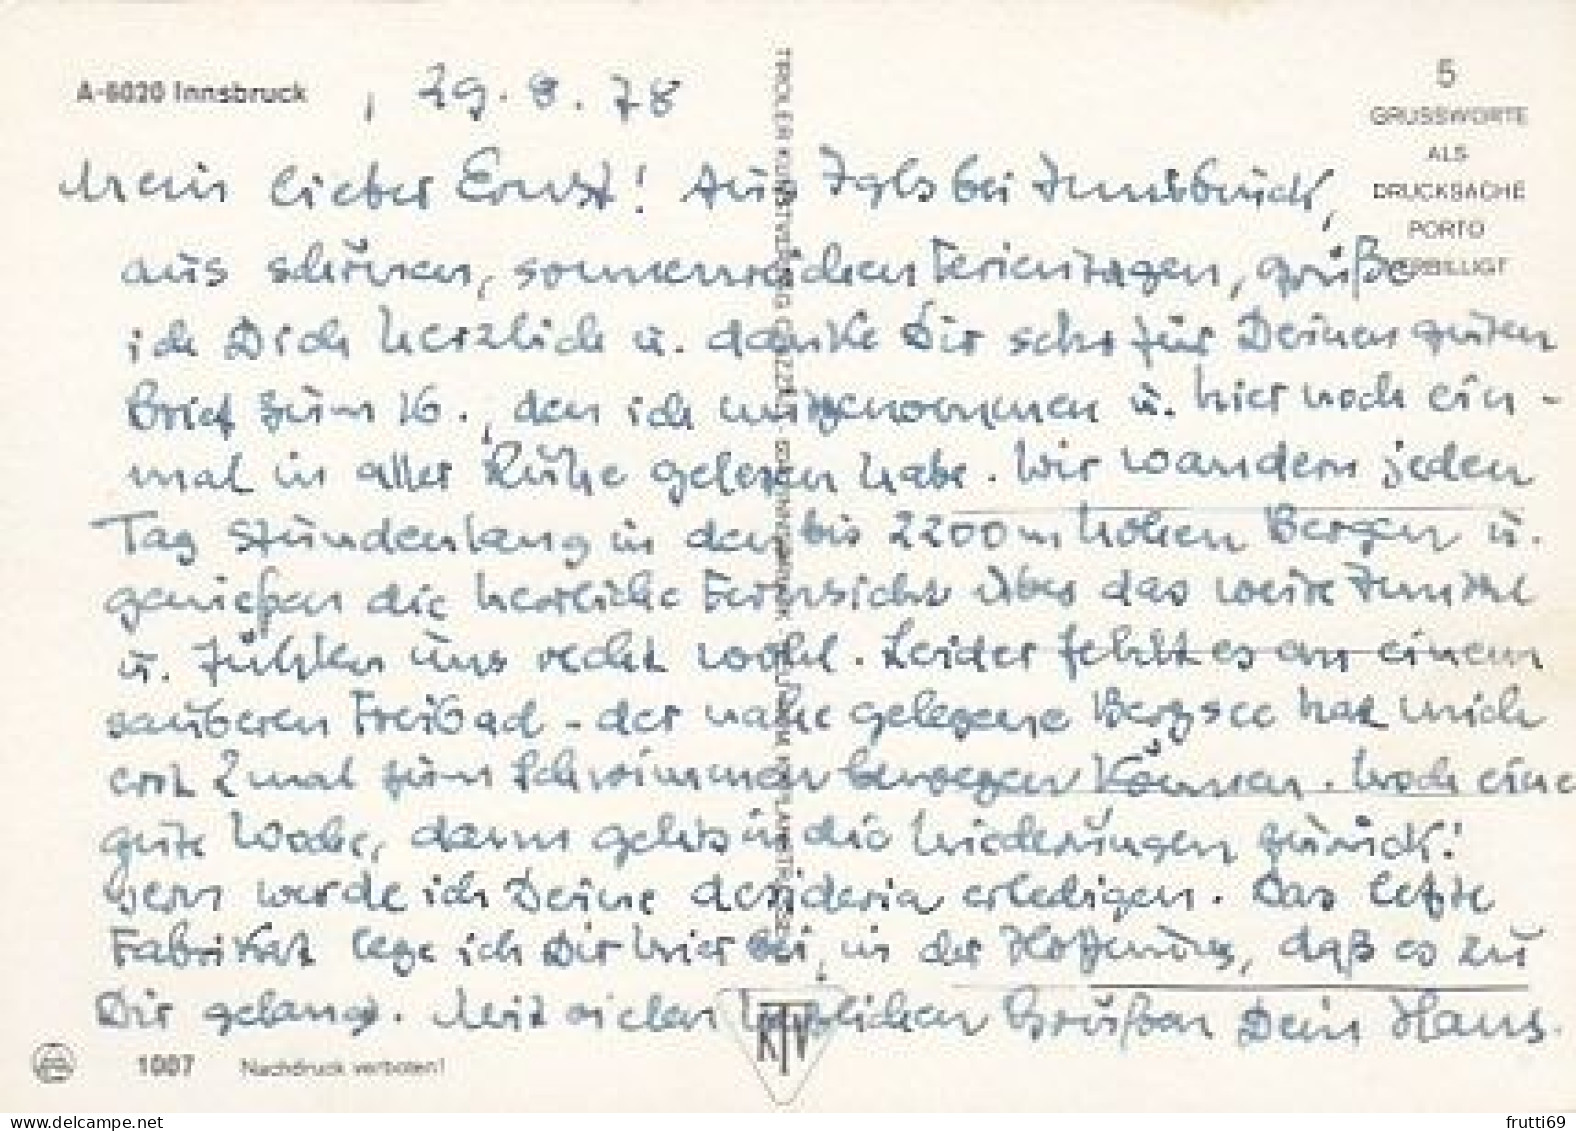 A-6020 Innsbruck , 29.8.78
5
GRUSSWORTE
ALS
DRUCKSACHE
PORTO
VERBILLIGT
Mein lieber Ernst! Aus Igls bei Innsbruck,
aus schönen, sonnenreichen Ferientagen, grüße
ich Dich herzlich u. danke Dir sehr für Deinen guten
Brief zum 16., den ich mitgenommen u. hier noch ein-
mal in aller Ruhe gelesen habe. Wir wandern jeden
Tag stundenlang in den bis 2200m hohen Bergen u.
genießen die herrliche Fernsicht über das weite Inntal
u. fühlen uns recht wohl. Leider fehlt es an einem
sauberen Freibad - der nahe gelegene Bergsee hat mich
erst 2mal zum Schwimmen bewegen können. Noch eine
gute Woche, dann geht's in die Niederungen zurück!
Gern werde ich Deine desideria erledigen. Das letzte
Fabrikat lege ich Dir hier bei, in der Hoffnung, daß es zu
Dir gelangt. Mit vielen herzlichen Grüßen Dein Hans.
TIROLER KUNSTVERLAG
KTV
1007 Nachdruck verboten!
frutti69